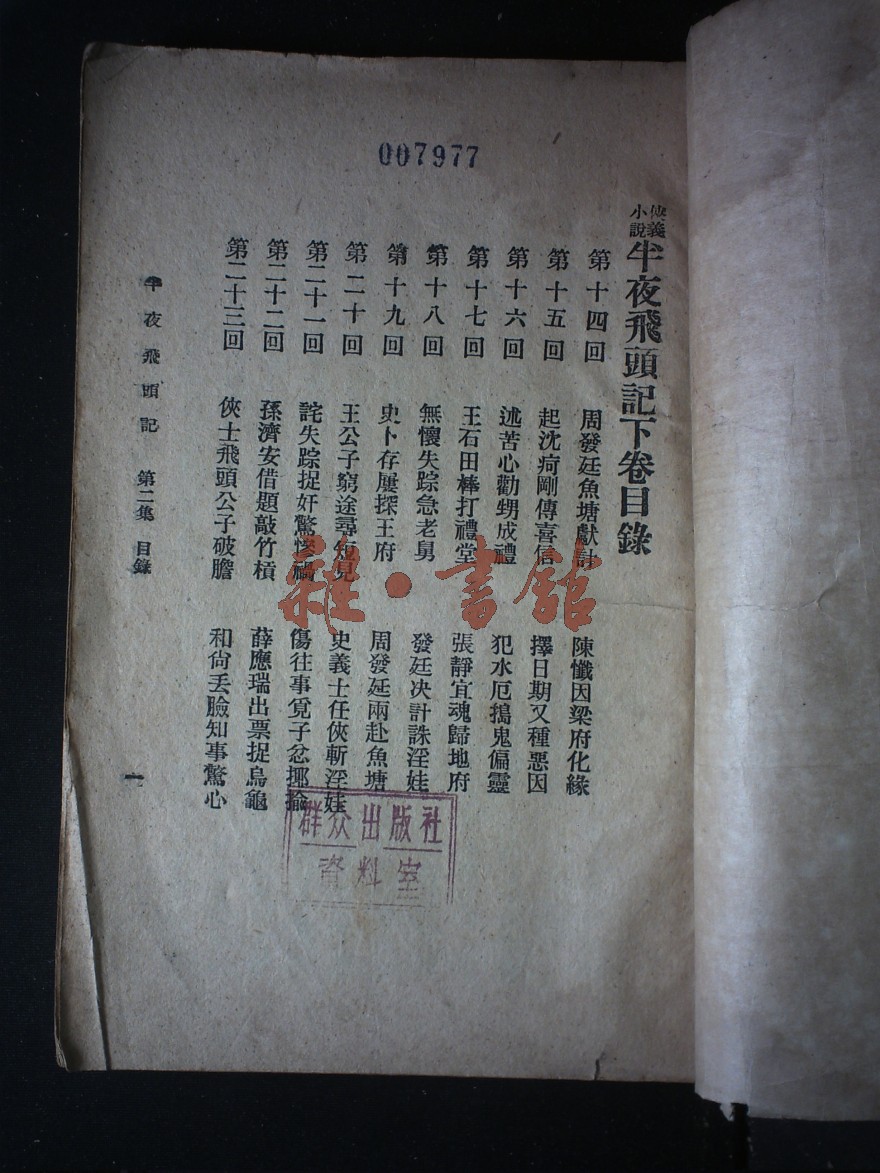 007977
俠義小說 半夜飛頭記下卷目錄
第十四回 周發廷魚塘獻計 陳懺因梁府化緣
第十五回 起沈疴剛傳喜信 擇日期又種惡因
第十六回 述苦心勸甥成禮 犯水厄搗鬼偏靈
第十七回 王石田棒打禮堂 張靜宜魂歸地府
第十八回 無懷失踪急老舅 發廷決計誅淫娃
第十九回 史卜存屢探王府 周發廷兩赴魚塘
第二十回 王公子窮途尋短見 史義士任俠斬淫娃
第二十一回 詫失踪捉奸驚慘禍 傷往事覓子忿揶揄
第二十二回 孫濟安借題敲竹槓 薛應瑞出票捉烏龜
第二十三回 俠士飛頭公子破膽 和尙丟臉知事驚心
半夜飛頭記 第二集 目錄 一
雜·書館
群众出版社
資料室